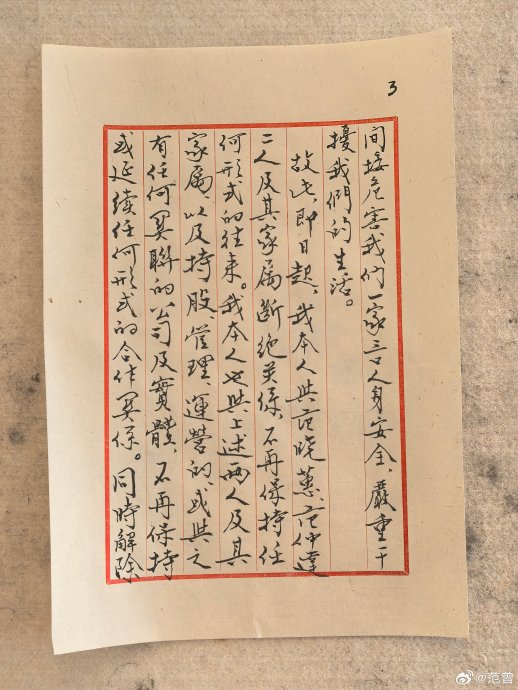 3
间接危害我们一家三口人身安全、嚴重干
擾我們的生活。
故此，即日起，我本人與范晓蕙、范仲達
二人及其家属断绝关係，不再保持任
何形式的往来。我本人也與上述两人及其
家属、以及持股管理運營的或與之
有任何関聯的公司及實體，不再保持
或延续任何形式的合作関係。同時解除
@范曾